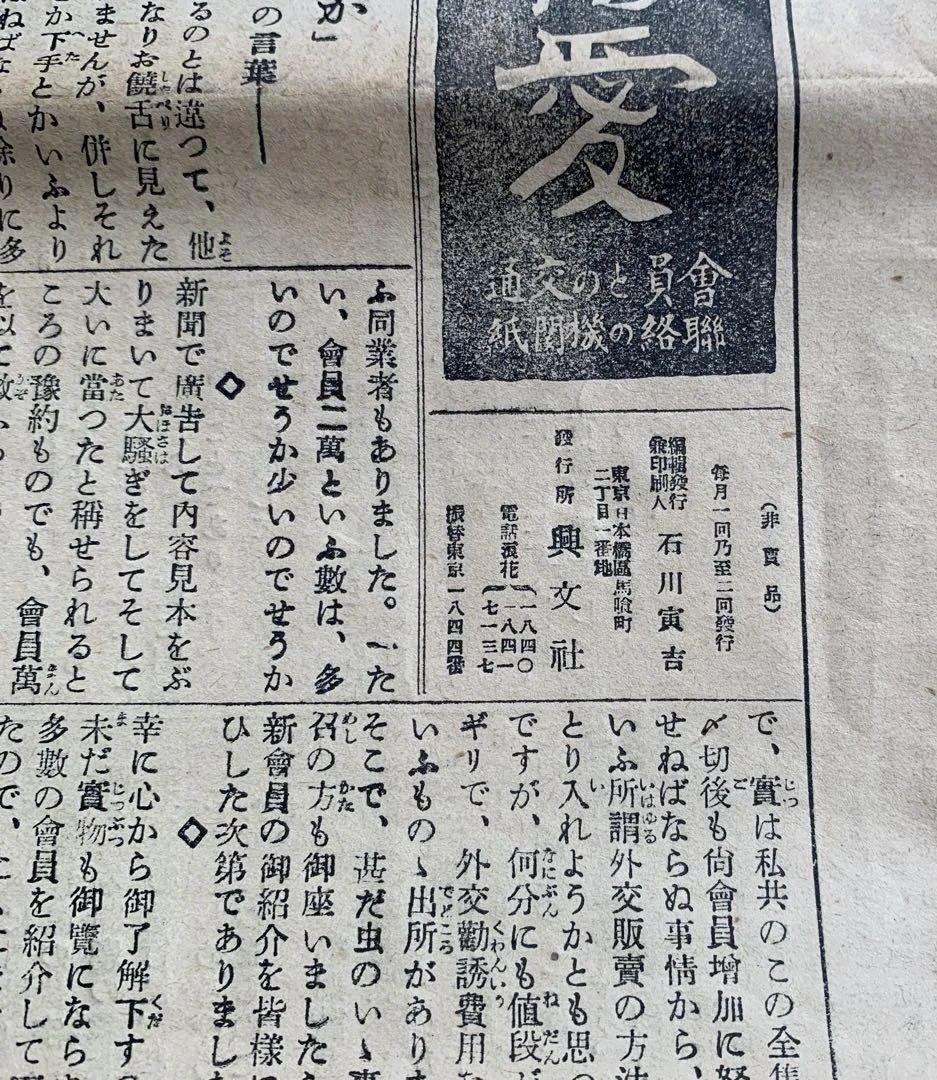 愛
會員との交通
聯絡の機關紙
(非賣品)
毎月一回乃至二回發行
編輯發行
兼印刷人
石川寅吉
東京日本橋區馬喰町
二丁目一番地
發行所 興文社
電話浪花(一八四〇
一八四一
七一三七
振替東京一八四四番
か」
の言葉――
るのとは違つて、他
なりお饒舌に見えた
ませんが、併しそれ
とか下手とかいふより
ふ同業者もありました。一た
い、會員二萬といふ數は、多
いのでせうか少いのでせうか
◇
新聞で廣告して内容見本をぶ
りまいて大騷ぎをしてそして
大いに當つたと稱せられると
ころの豫約ものでも、會員萬
で、實は私共のこの全集
〆切後も尚會員增加に努
せねばならぬ事情から、
いふ所謂外交販賣の方法
とり入れようかとも思つ
ですが、何分にも値段が
ギリで、外交勸誘費用な
いふものゝ出所がありま
そこで、甚だ虫のいゝ事
召の方も御座いましたら
新會員の御紹介を皆樣に
ひした次第でありまし
◇
幸に心から御了解下す
未だ實物も御覽になら
多數の會員を紹介して
たので、